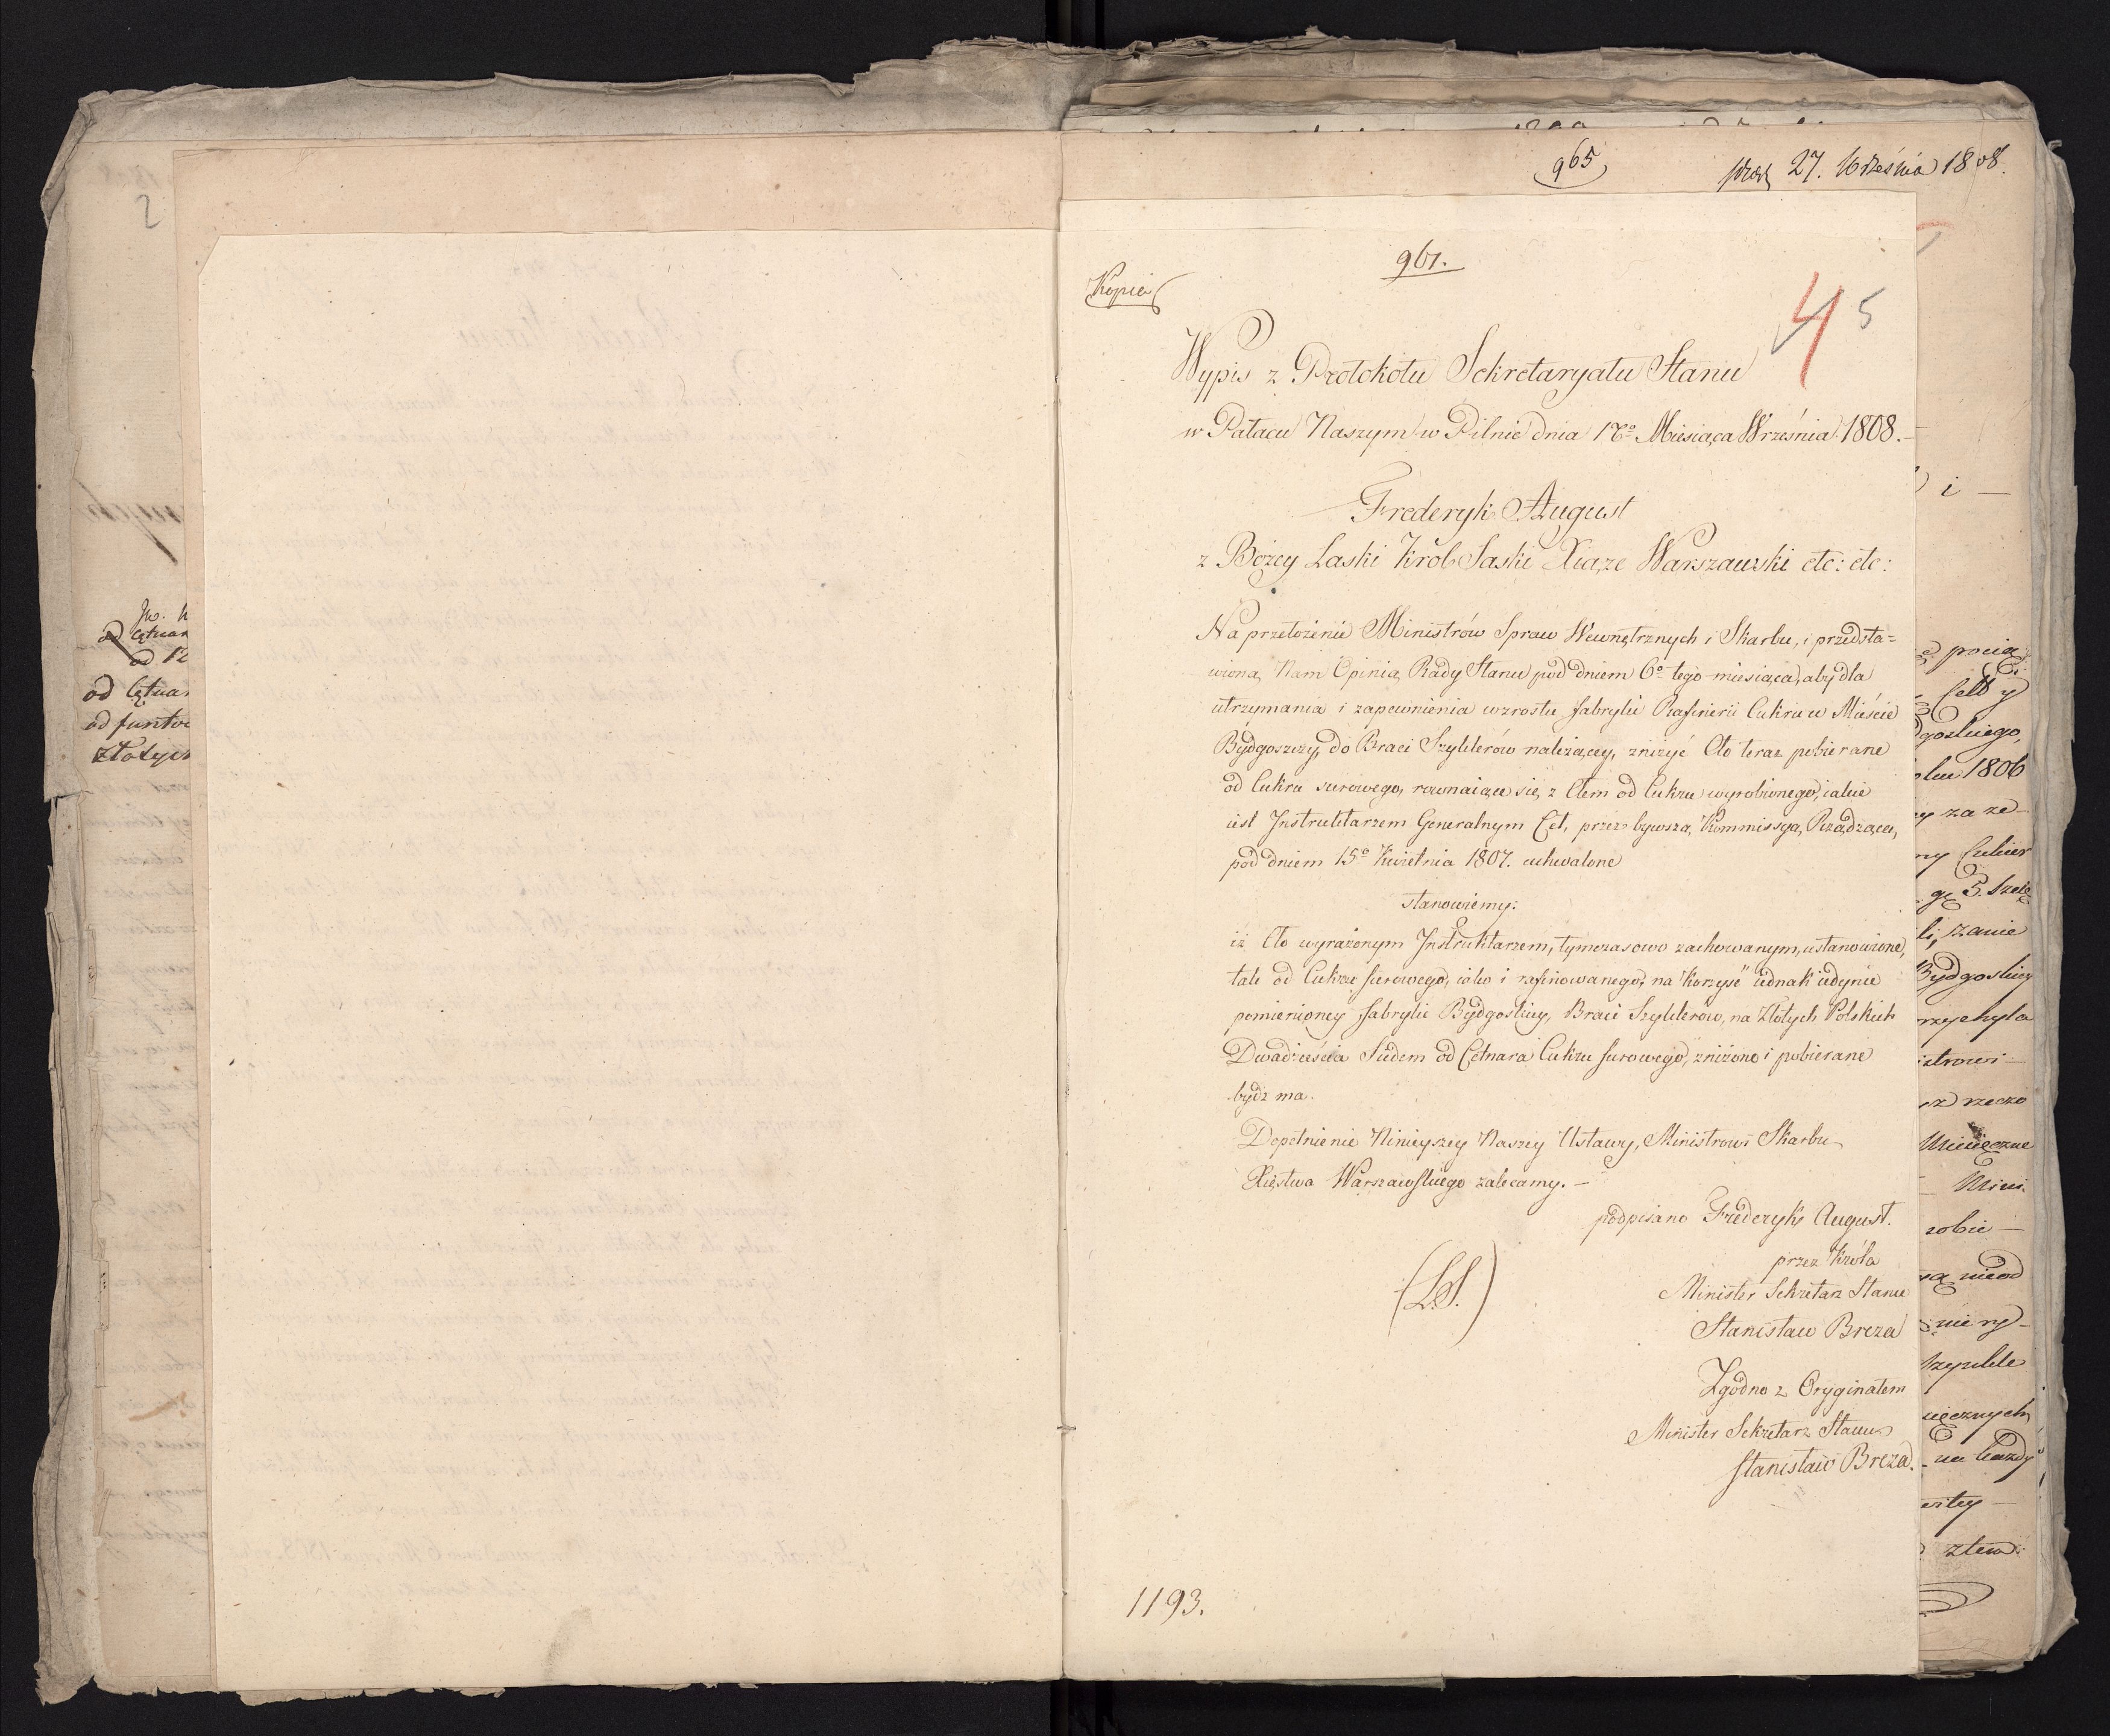 2
965
27. Września 1808.
961.
Kopia
4 5
Wypis z Protokołu Sekretaryatu Stanu
w Pałacu Naszym w Pilnie dnia 16º Miesiąca Września 1808.
Frederyk August
z Bożey Łaski Król Saski Xiąże Warszawski etc: etc:
Na przełożenie Ministrów Spraw Wewnętrznych i Skarbu, i przedsta=
wioną Nam Opinią Rady Stanu pod dniem 6º tego miesiąca, aby dla
utrzymania i zapewnienia wzrostu fabryki Rafinerii Cukru w Mieście
Bydgoszczy, do Braci Szyklerów należącey, zniżyć Cło teraz pobierane
od Cukru surowego, rownaiące się z Cłem od Cukru wyrobionego, iakie
iest Instruktarzem Generalnym Ceł, przez bywszą Kommissyą Rządzącą,
pod dniem 15º Kwietnia 1807. uchwalone
stanowiemy:
iż Cło wyrażonym Instruktarzem, tymczasowo zachowanym, ustanowione,
tak od Cukru surowego, iako i rafinowanego, na korzyść iednak iedynie
pomienioney fabryki Bydgoskiey, Braci Szyklerów, na Złotych Polskich
Dwadzieścia Siedem od Cetnara Cukru surowego, zniżone i pobierane
bydź ma.
Dopełnienie Ninieyszey Naszey Ustawy, Ministrowi Skarbu
Xięstwa Warszawskiego zalecamy. —
podpisano Frederyk August.
przez Króla
Minister Sekretarz Stanu
(L.S.)
Stanisław Breza
Zgodno z Oryginałem
Minister Sekretarz Stanu
Stanisław Breza.
1193.
od 12
od funtów
Złotych
i —
1806
za ze
5.
Bydgoskiey
rzeczo
na każdy